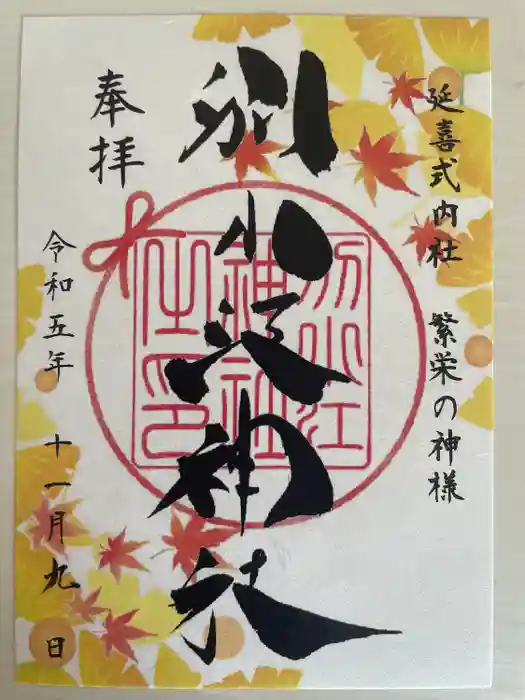 延喜式内社　繁栄の神様
別小江神社
別小江
神社
之印
奉拝
令和五年　十一月九日